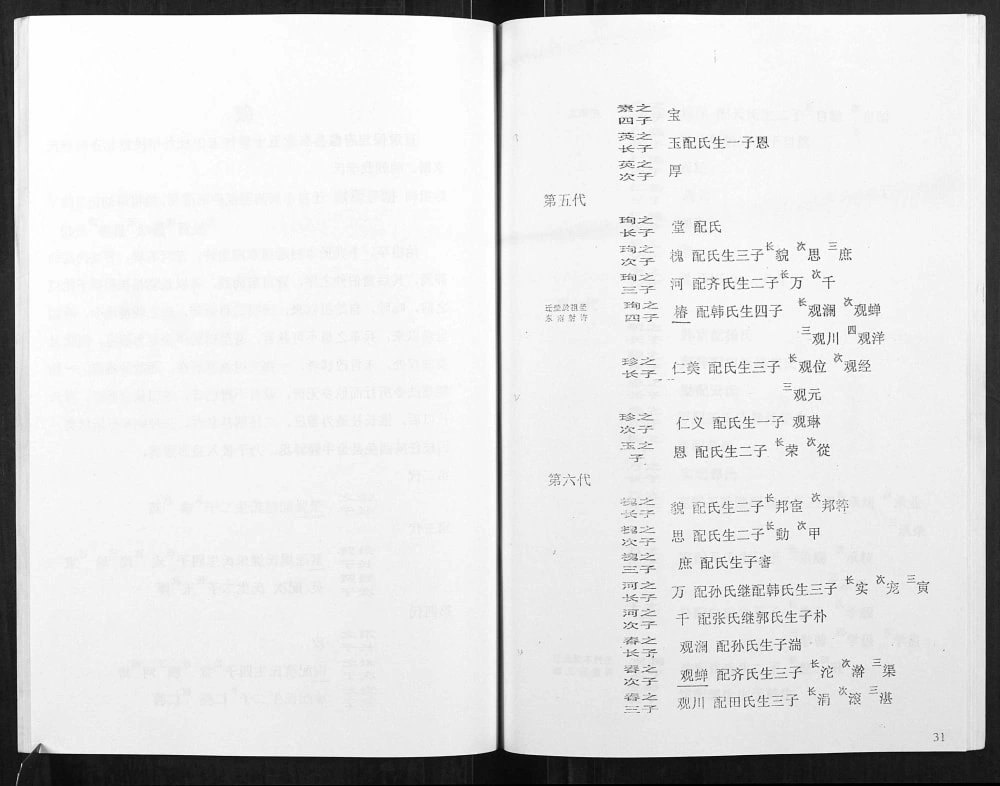 寀之四子 宝
英之长子 玉配氏生一子恩
英之次子 厚
第五代
珣之长子 堂 配氏
珣之次子 槐 配氏生三子 长貌 次思 三庶
珣之三子 河 配齐氏生二子 长万 次千
珣之四子 椿 配韩氏生四子 长观澜 次观蝉
东南
三观川 四观洋
珍之长子 仁美 配氏生三子 长观位 次观经
三观元
珍之次子 仁义 配氏生一子 观琳
玉之子 恩 配氏生二子 长荣 次従
第六代
槐之长子 貌 配氏生二子 长邦宦 次邦粹
槐之次子 思 配氏生二子 长動 次甲
槐之三子 庶 配氏生子審
河之长子 万 配孙氏继配韩氏生三子 长实 次宠 三寅
河之次子 千 配张氏继郭氏生子朴
春之长子 观澜 配孙氏生子湍
春之次子 观蝉 配齐氏生三子 长沱 次澣 三渠
春之三子 观川 配田氏生三子 长涓 次滚 三湛
31